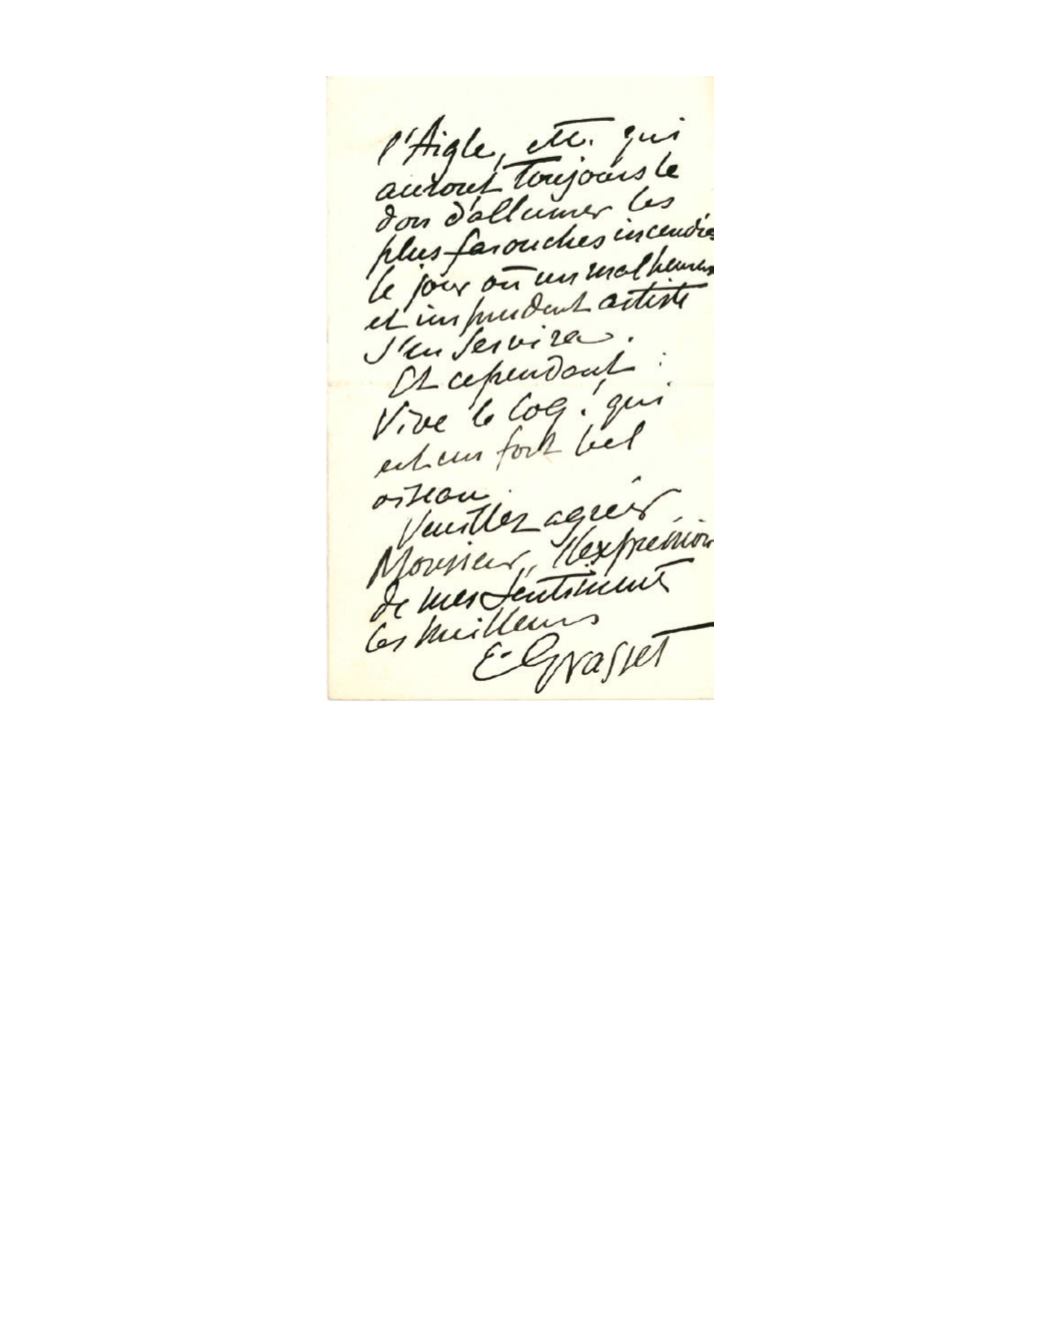 l'Aigle, etc. qui
auront toujours le
don d'allumer les
plus farouches incendies
le jour où un malheureux
et imprudent artiste
s'en servira.
Et cependant :
Vive le Coq ! qui
est un fort bel
oiseau.
Veuillez agréer,
Monsieur, l'expression
de mes sentiments
les meilleurs
E. Grasset